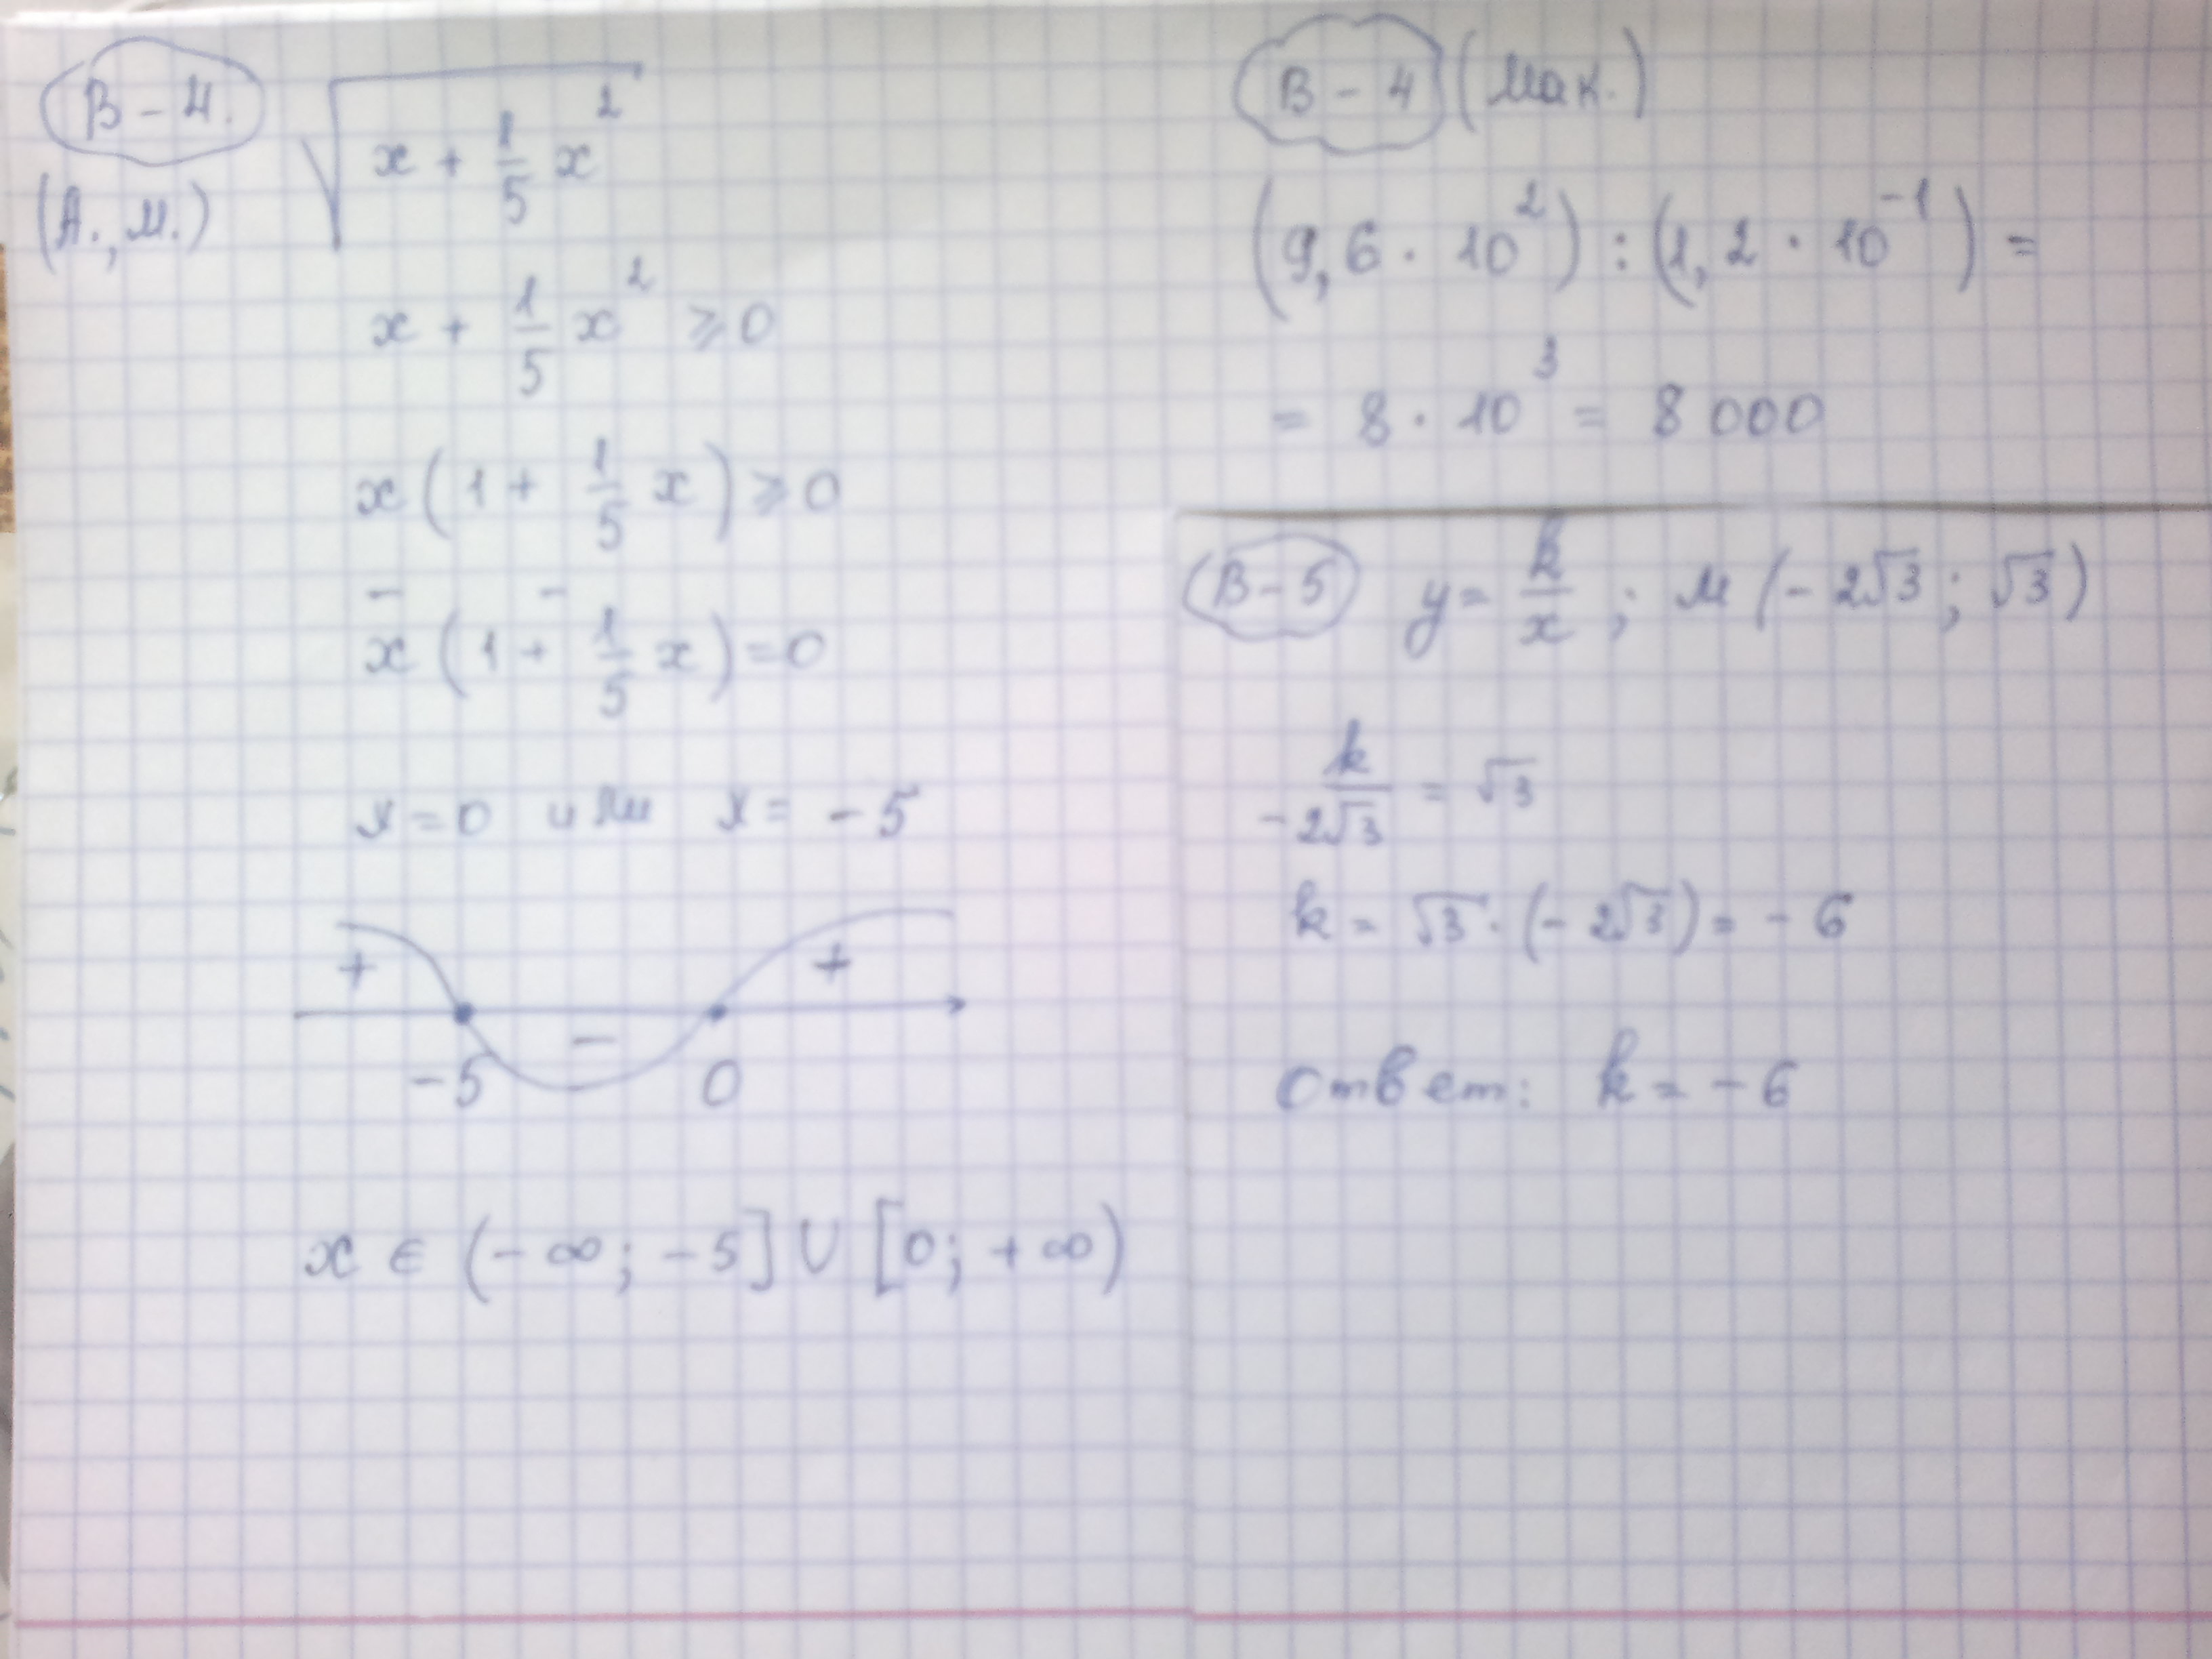 В-4.
(А., М.)
√(x + 1/5 x²)
x + 1/5 x² ⩾ 0
x (1 + 1/5 x) ⩾ 0
– –
x (1 + 1/5 x) = 0
x = 0 или x = -5
+ – +
-5 0
x ∈ (-∞; -5] ∪ [0; +∞)
В-4 (Мак.)
(9,6 · 10²) : (1,2 · 10⁻¹) =
= 8 · 10³ = 8 000
В-5 y = k/x ; М (-2√3 ; √3)
k/-2√3 = √3
k = √3 · (-2√3) = -6
Ответ: k = -6